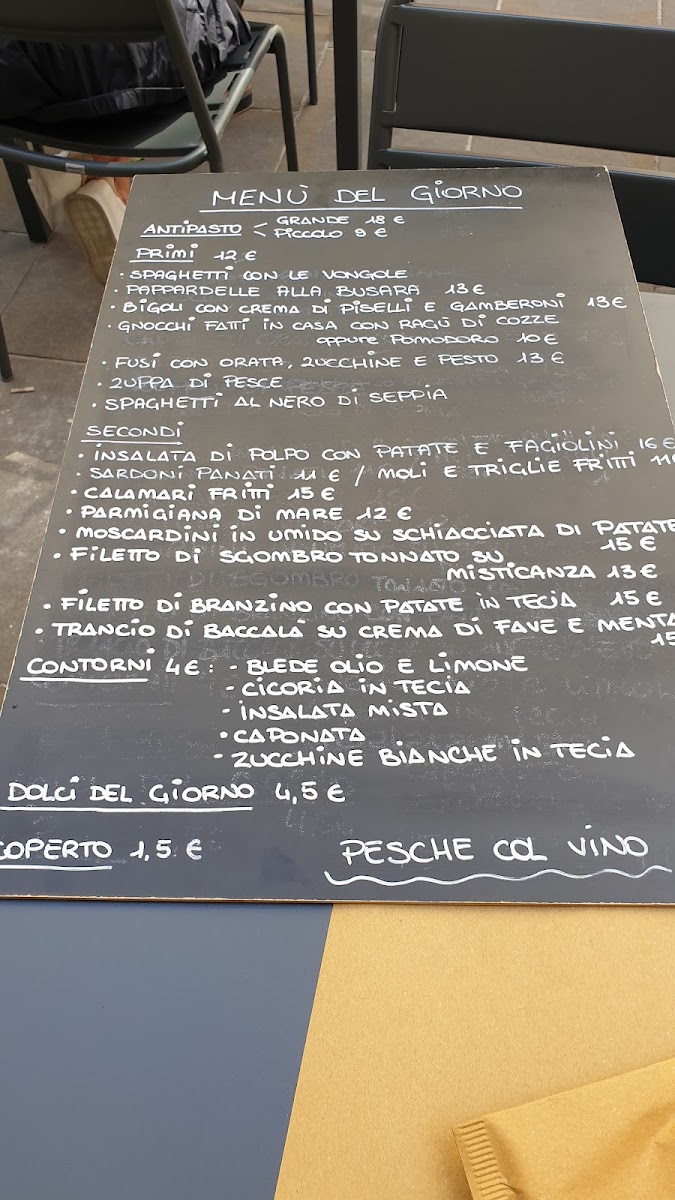 MENÙ DEL GIORNO
ANTIPASTO < GRANDE 18 €
< PICCOLO 9 €
PRIMI 12 €
• SPAGHETTI CON LE VONGOLE
• PAPPARDELLE ALLA BUSARA 13 €
• BIGOLI CON CREMA DI PISELLI E GAMBERONI 13 €
• GNOCCHI FATTI IN CASA CON RAGÙ DI COZZE
OPPURE POMODORO 10 €
• FUSI CON ORATA, ZUCCHINE E PESTO 13 €
• ZUPPA DI PESCE
• SPAGHETTI AL NERO DI SEPPIA
SECONDI
• INSALATA DI POLPO CON PATATE E FAGIOLINI 16 €
• SARDONI PANATI 11 € / MOLI E TRIGLIE FRITTI 11
• CALAMARI FRITTI 15 €
• PARMIGIANA DI MARE 12 €
• MOSCARDINI IN UMIDO SU SCHIACCIATA DI PATATE
15 €
• FILETTO DI SGOMBRO TONNATO SU
MISTICANZA 13 €
• FILETTO DI BRANZINO CON PATATE IN TECIA 15 €
• TRANCIO DI BACCALÀ SU CREMA DI FAVE E MENTA
15
CONTORNI 4 € : - BLEDE OLIO E LIMONE
- CICORIA IN TECIA
- INSALATA MISTA
• CAPONATA
- ZUCCHINE BIANCHE IN TECIA
DOLCI DEL GIORNO 4,5 €
COPERTO 1,5 €
PESCHE COL VINO